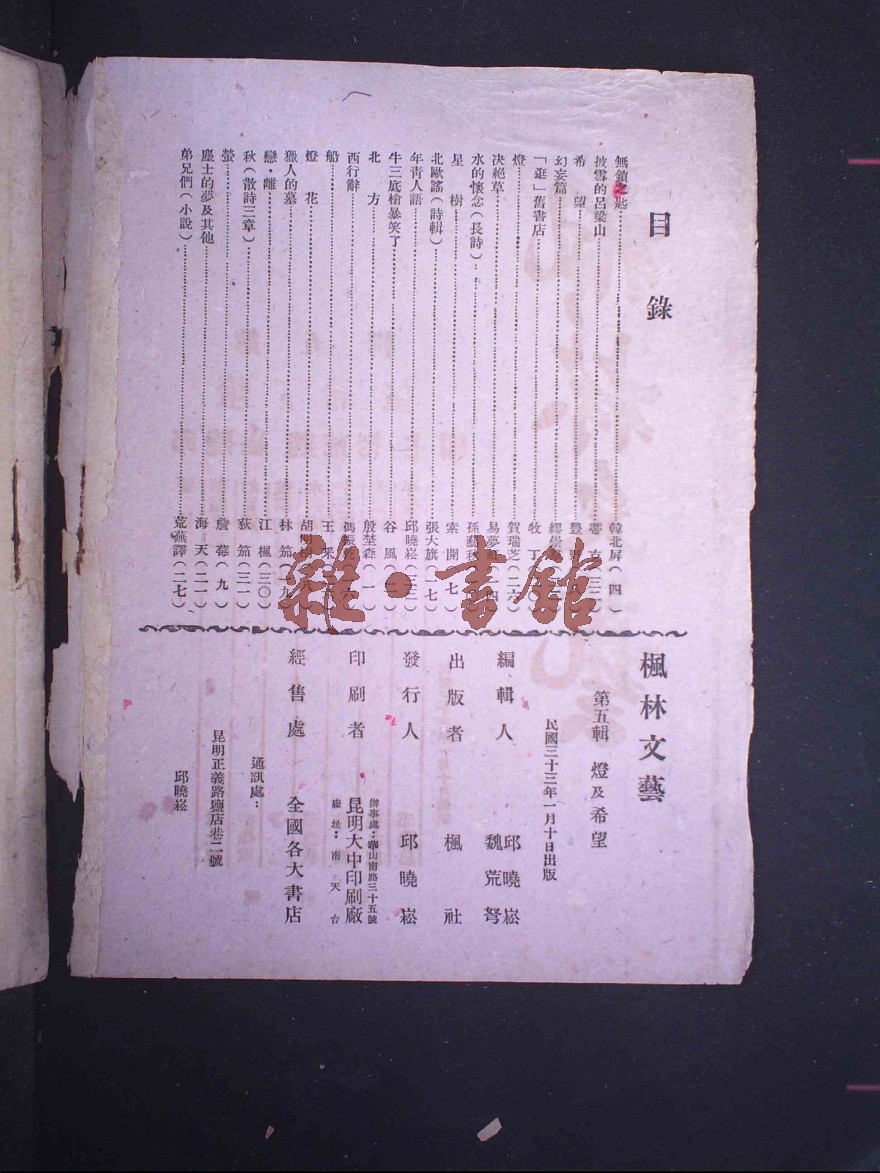 目錄
無鎖之匙……韓北屏（四）
披雪的呂梁山……
希望……
幻妄篇……
「逛」舊書店……牧丁
燈……賀瑞芝（二六）
決絕草……易夢虹
水的懷念（長詩）……孫藝秋
星樹……索開
北歐謠（詩輯）……張大旗（一七）
年青人語……邱曉崧（三三）
牛三底槍暴笑了……谷風
北方……殷埜森
西行辭……馮振乾
船……王采
燈花……胡明樹
獵人的墓……林笳（一九）
戀·離……江楓（三〇）
秋（散詩三章）……荻笳（三一）
螢……詹莓（九）
塵土的夢及其他……海天（二一）
弟兄們（小說）……荒蕪譯（二七）
楓林文藝
第五輯 燈及希望
民國三十三年一月十日出版
編輯人 邱曉崧
魏荒弩
出版者 楓社
發行人 邱曉崧
印刷者 昆明大中印刷廠
辦事處：華山南路三十五號
廠址：南天台
經售處 全國各大書店
通訊處：
昆明正義路鹽店巷二號
邱曉崧
雜·書館